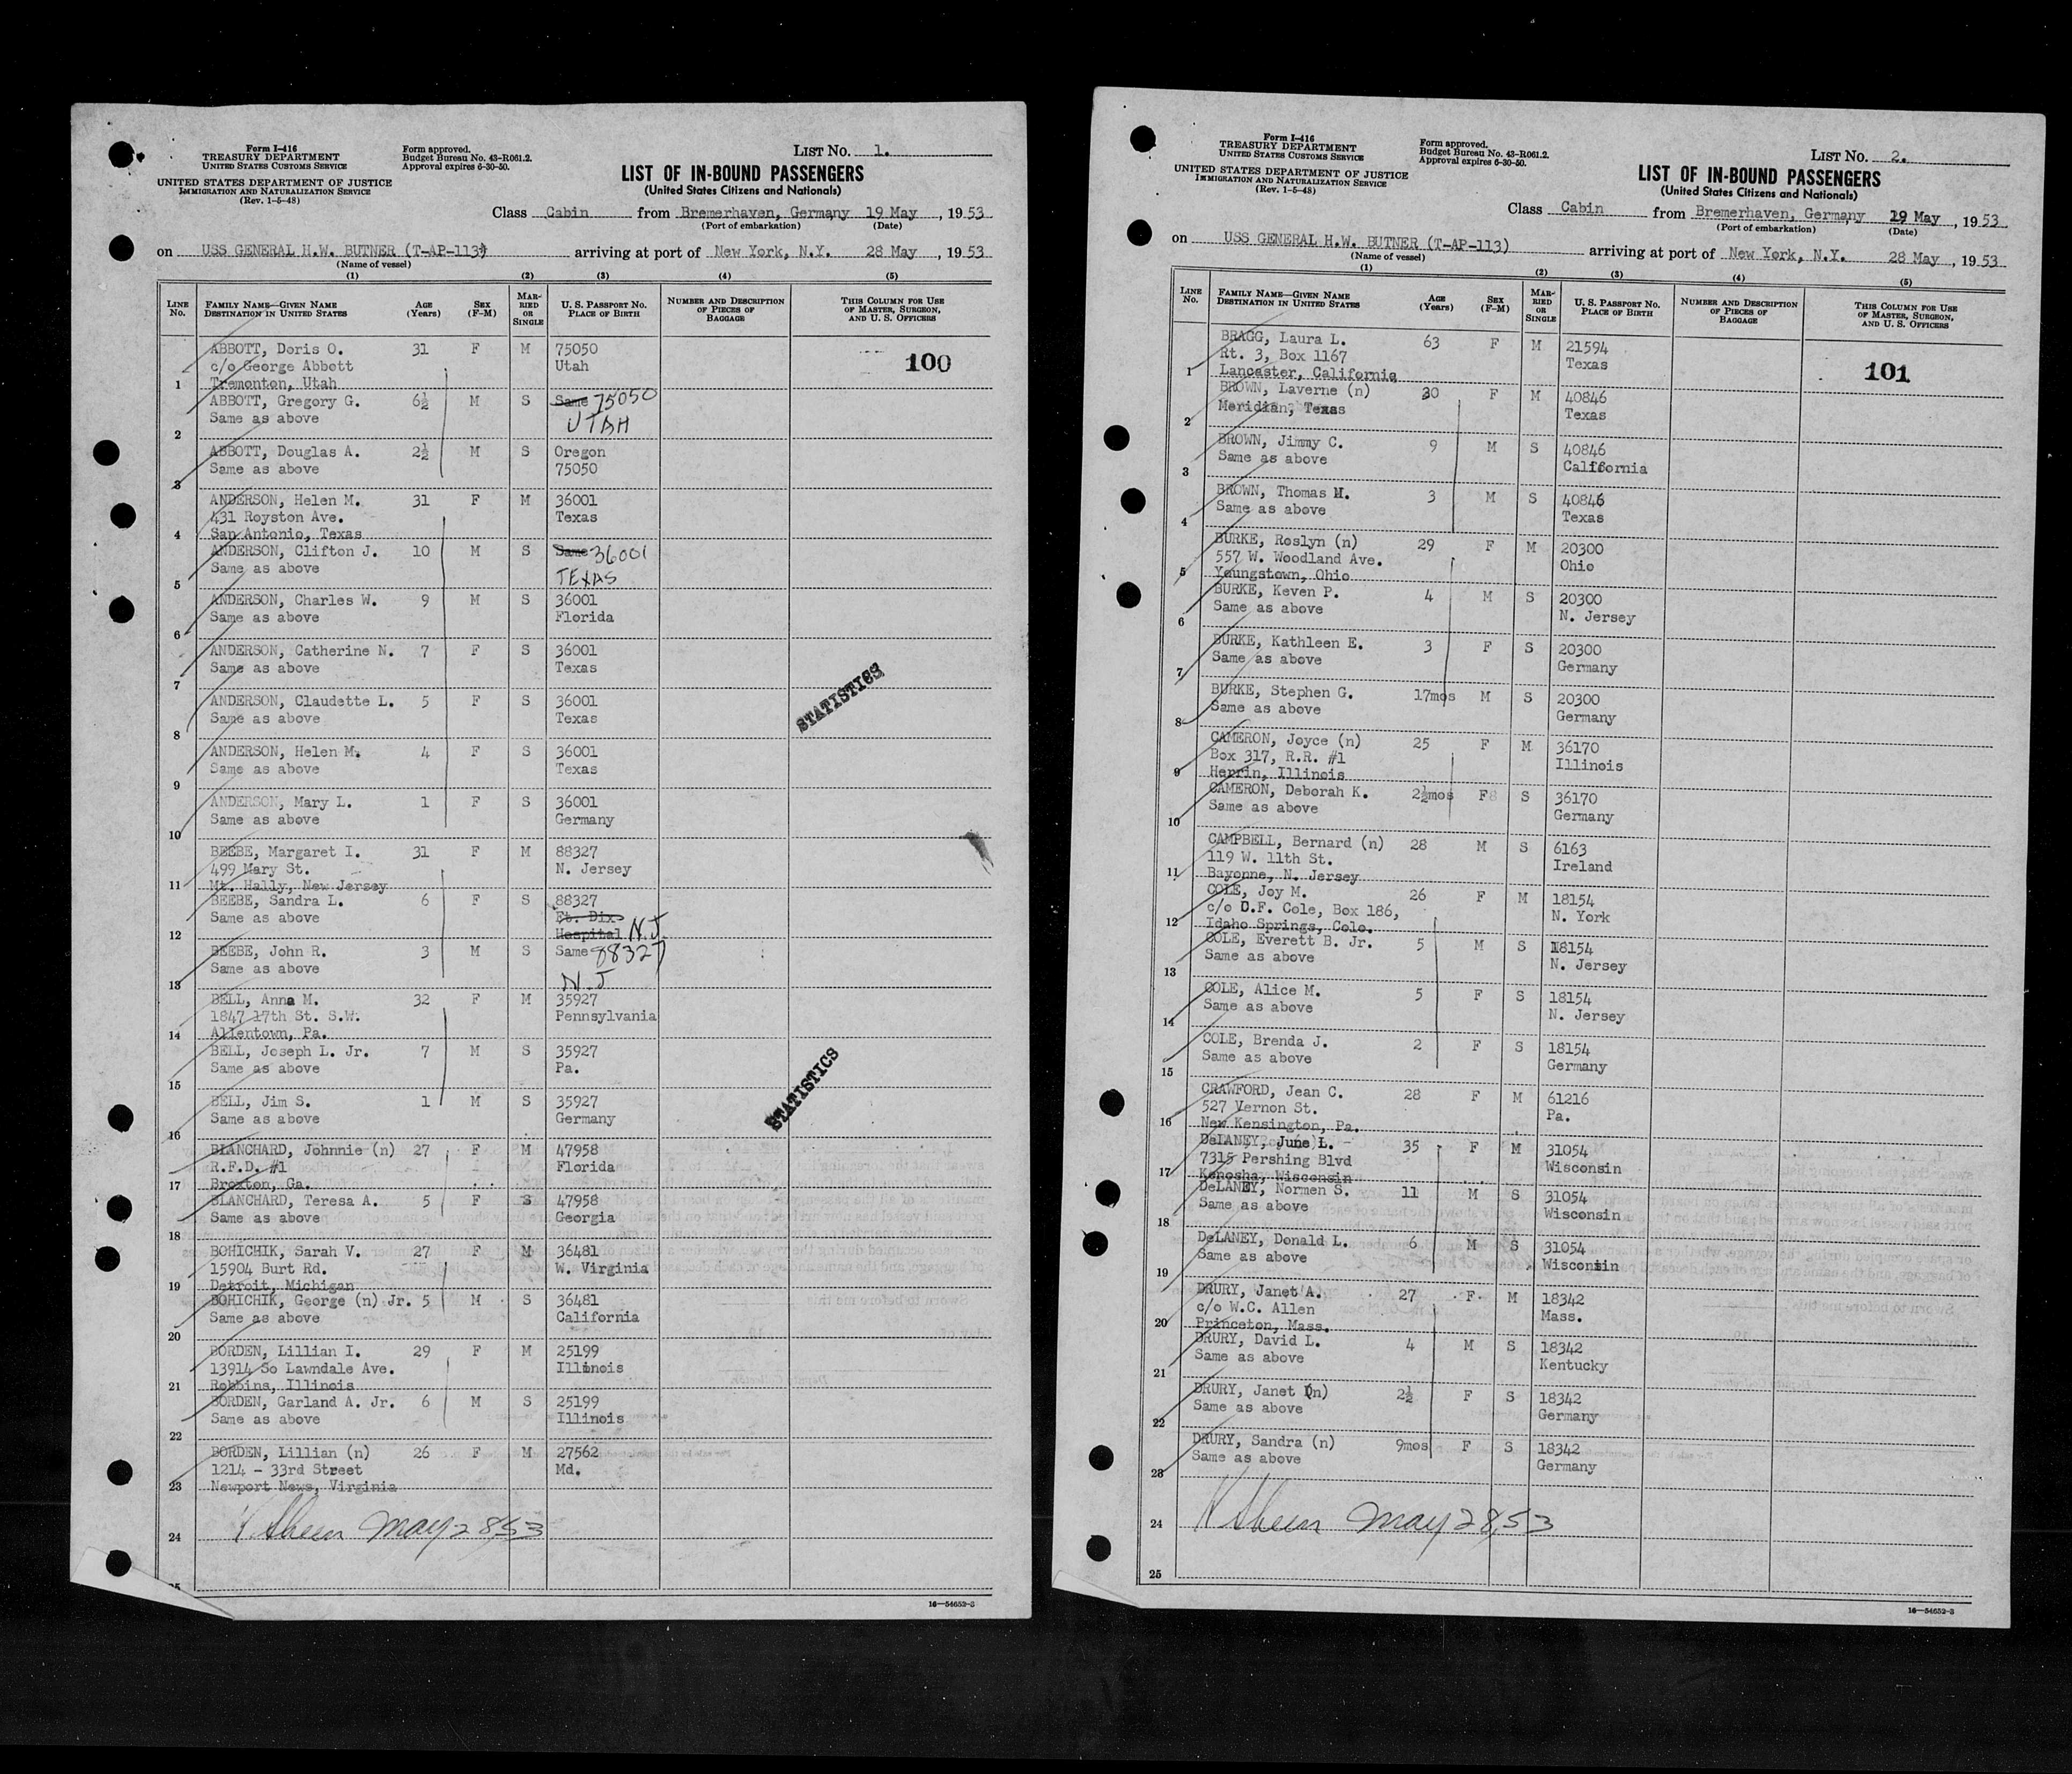 Form I-416
TREASURY DEPARTMENT
UNITED STATES CUSTOMS SERVICE
UNITED STATES DEPARTMENT OF JUSTICE
IMMIGRATION AND NATURALIZATION SERVICE
(Rev. 1-5-48)
Form approved.
Budget Bureau No. 43-R061.2.
Approval expires 6-30-50.
LIST NO. 1.
LIST OF IN-BOUND PASSENGERS
(United States Citizens and Nationals)
Class Cabin from Bremerhaven, Germany 19 May, 1953
(Port of embarkation) (Date)
on USS GENERAL H.W. BUTNER (T-AP-113) arriving at port of New York, N.Y. 28 May, 1953
(Name of vessel)
(1) (2) (3) (4) (5)
LINE No. FAMILY NAME—GIVEN NAME DESTINATION IN UNITED STATES AGE (Years) SEX (F-M) MARRIED OR SINGLE U. S. PASSPORT NO. PLACE OF BIRTH NUMBER AND DESCRIPTION OF PIECES OF BAGGAGE THIS COLUMN FOR USE OF MASTER, SURGEON, AND U. S. OFFICERS
ABBOTT, Doris O. 31 F M 75050 100
c/o George Abbott Utah
1 Tremonton, Utah
ABBOTT, Gregory G. 6½ M S Same 75050
Same as above UTAH
2
ABBOTT, Douglas A. 2½ M S Oregon
Same as above 75050
3
ANDERSON, Helen M. 31 F M 36001
431 Royston Ave. Texas
4 San Antonio, Texas
ANDERSON, Clifton J. 10 M S Same 36001
Same as above TEXAS
5
ANDERSON, Charles W. 9 M S 36001
Same as above Florida
6
ANDERSON, Catherine N. 7 F S 36001
Same as above Texas
7
ANDERSON, Claudette L. 5 F S 36001
Same as above Texas
8
STATISTICS
ANDERSON, Helen M. 4 F S 36001
Same as above Texas
9
ANDERSON, Mary L. 1 F S 36001
Same as above Germany
10
BEEBE, Margaret I. 31 F M 88327
499 Mary St. N. Jersey
11 Mt. Hally, New Jersey
BEEBE, Sandra L. 6 F S 88327
Same as above Ft. Dix
12 Hospital N.J.
BEEBE, John R. 3 M S Same 88327
Same as above N.J
13
BELL, Anna M. 32 F M 35927
1847 17th St. S.W. Pennsylvania
14 Allentown, Pa.
BELL, Joseph L. Jr. 7 M S 35927
Same as above Pa.
15
STATISTICS
BELL, Jim S. 1 M S 35927
Same as above Germany
16
BLANCHARD, Johnnie (n) 27 F M 47958
R.F.D. #1 Florida
17 Broxton, Ga.
BLANCHARD, Teresa A. 5 F S 47958
Same as above Georgia
18
BOHICHIK, Sarah V. 27 F M 36481
15904 Burt Rd. W. Virginia
19 Detroit, Michigan
BOHICHIK, George (n) Jr. 5 M S 36481
Same as above California
20
BORDEN, Lillian I. 29 F M 25199
13914 So Lawndale Ave. Illinois
21 Robbins, Illinois
BORDEN, Garland A. Jr. 6 M S 25199
Same as above Illinois
22
BORDEN, Lillian (n) 26 F M 27562
1214 - 33rd Street Md.
23 Newport News, Virginia
24 May 28, 53
25
16—54652-3
Form I-416
TREASURY DEPARTMENT
UNITED STATES CUSTOMS SERVICE
UNITED STATES DEPARTMENT OF JUSTICE
IMMIGRATION AND NATURALIZATION SERVICE
(Rev. 1-5-48)
Form approved.
Budget Bureau No. 43-R061.2.
Approval expires 6-30-50.
LIST NO. 2.
LIST OF IN-BOUND PASSENGERS
(United States Citizens and Nationals)
Class Cabin from Bremerhaven, Germany 19 May, 1953
(Port of embarkation) (Date)
on USS GENERAL H.W. BUTNER (T-AP-113) arriving at port of New York, N.Y. 28 May, 1953
(Name of vessel)
(1) (2) (3) (4) (5)
LINE No. FAMILY NAME—GIVEN NAME DESTINATION IN UNITED STATES AGE (Years) SEX (F-M) MARRIED OR SINGLE U. S. PASSPORT NO. PLACE OF BIRTH NUMBER AND DESCRIPTION OF PIECES OF BAGGAGE THIS COLUMN FOR USE OF MASTER, SURGEON, AND U. S. OFFICERS
BRAGG, Laura L. 63 F M 21594 101
Rt. 3, Box 1167 Texas
1 Lancaster, California
BROWN, Laverne (n) 30 F M 40846
Meridian, Texas Texas
2
BROWN, Jimmy C. 9 M S 40846
Same as above California
3
BROWN, Thomas M. 3 M S 40846
Same as above Texas
4
BURKE, Roslyn (n) 29 F M 20300
557 W. Woodland Ave. Ohio
5 Youngstown, Ohio
BURKE, Keven P. 4 M S 20300
Same as above N. Jersey
6
BURKE, Kathleen E. 3 F S 20300
Same as above Germany
7
BURKE, Stephen G. 17mos M S 20300
Same as above Germany
8
CAMERON, Joyce (n) 25 F M 36170
Box 317, R.R. #1 Illinois
9 Herrin, Illinois
CAMERON, Deborah K. 2½mos F S 36170
Same as above Germany
10
CAMPBELL, Bernard (n) 28 M S 6163
119 W. 11th St. Ireland
11 Bayonne, N. Jersey
COLE, Joy M. 26 F M 18154
c/o D.F. Cole, Box 186, N. York
12 Idaho Springs, Colo.
COLE, Everett B. Jr. 5 M S 18154
Same as above N. Jersey
13
COLE, Alice M. 5 F S 18154
Same as above N. Jersey
14
COLE, Brenda J. 2 F S 18154
Same as above Germany
15
CRAWFORD, Jean C. 28 F M 61216
527 Vernon St. Pa.
16 New Kensington, Pa.
DeLANEY, June L. 35 F M 31054
7315 Pershing Blvd Wisconsin
17 Kenosha, Wisconsin
DeLANEY, Normen S. 11 M S 31054
Same as above Wisconsin
18
DeLANEY, Donald L. 6 M S 31054
Same as above Wisconsin
19
DRURY, Janet A. 27 F M 18342
c/o W.C. Allen Mass.
20 Princeton, Mass.
DRURY, David L. 4 M S 18342
Same as above Kentucky
21
DRURY, Janet (n) 2½ F S 18342
Same as above Germany
22
DRURY, Sandra (n) 9mos F S 18342
Same as above Germany
23
24 May 28, 53
25
16—54652-3